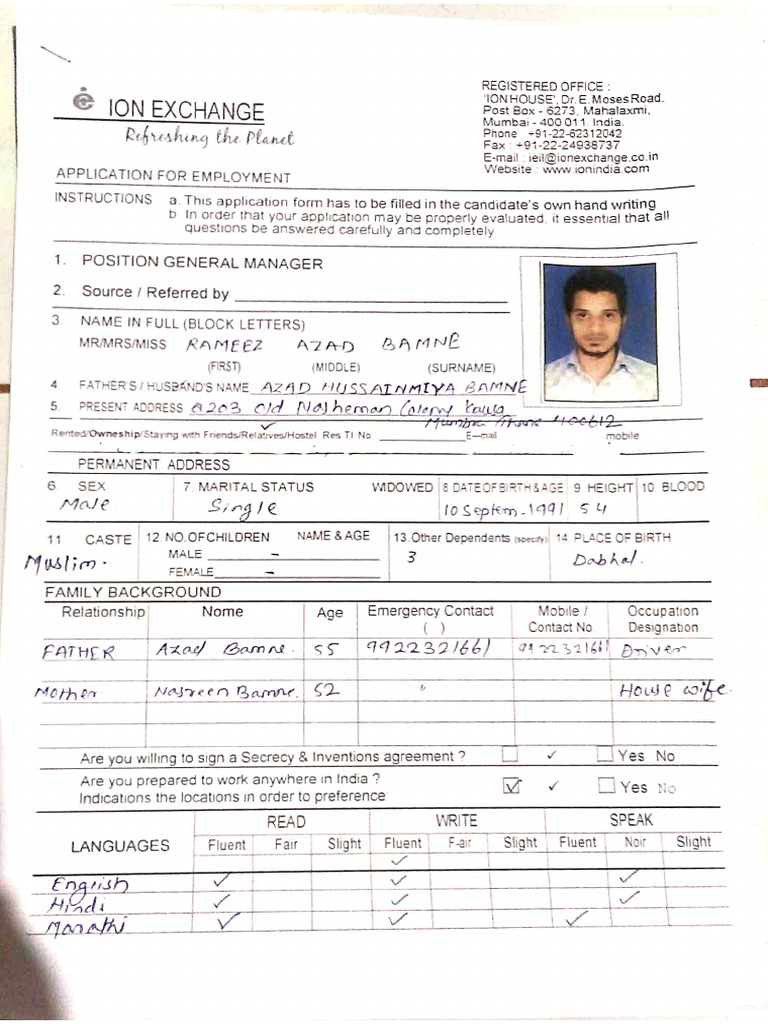 ION EXCHANGE
Refreshing the Planet
REGISTERED OFFICE :
'ION HOUSE', Dr. E. Moses Road.
Post Box - 6273, Mahalaxmi,
Mumbai - 400 011. India.
Phone +91-22-62312042
Fax : +91-22-24938737
E-mail : ieil@ionexchange.co.in
Website : www.ionindia.com
APPLICATION FOR EMPLOYMENT
INSTRUCTIONS a. This application form has to be filled in the candidate's own hand writing
b In order that your application may be properly evaluated, it essential that all
questions be answered carefully and completely
1. POSITION GENERAL MANAGER
2. Source / Referred by
3. NAME IN FULL (BLOCK LETTERS)
MR/MRS/MISS RAMEEZ AZAD BAMNE
(FIRST) (MIDDLE) (SURNAME)
4 FATHER'S / HUSBAND'S NAME AZAD HUSSAINMIYA BAMNE
5. PRESENT ADDRESS a203 old Nasheman Colony Kausa
Mumbra Thane 400612
Rented/Owneship/Staying with Friends/Relatives/Hostel Res Tl No E-mail mobile
PERMANENT ADDRESS
6. SEX 7. MARITAL STATUS WIDOWED 8 DATE OF BIRTH & AGE 9 HEIGHT 10 BLOOD
Male Single 10 Septem-1991 54
11 CASTE 12. NO. OF CHILDREN NAME & AGE 13. Other Dependents (specify) 14 PLACE OF BIRTH
Muslim. MALE - 3 Dabhal.
FEMALE -
FAMILY BACKGROUND
Relationship Nome Age Emergency Contact Mobile / Occupation
( ) Contact No Designation
FATHER Azad Bamne. 55 9922321661 9922321661 Driver
Mother Nasreen Bamne. 52 " House wife.
Are you willing to sign a Secrecy & Inventions agreement ? ✓ Yes No
Are you prepared to work anywhere in India ? ✓ Yes No
Indications the locations in order to preference
LANGUAGES READ WRITE SPEAK
Fluent Fair Slight Fluent F-air Slight Fluent Noir Slight
✓
English ✓ ✓ ✓
Hindi ✓ ✓ ✓
Marathi ✓ ✓ ✓